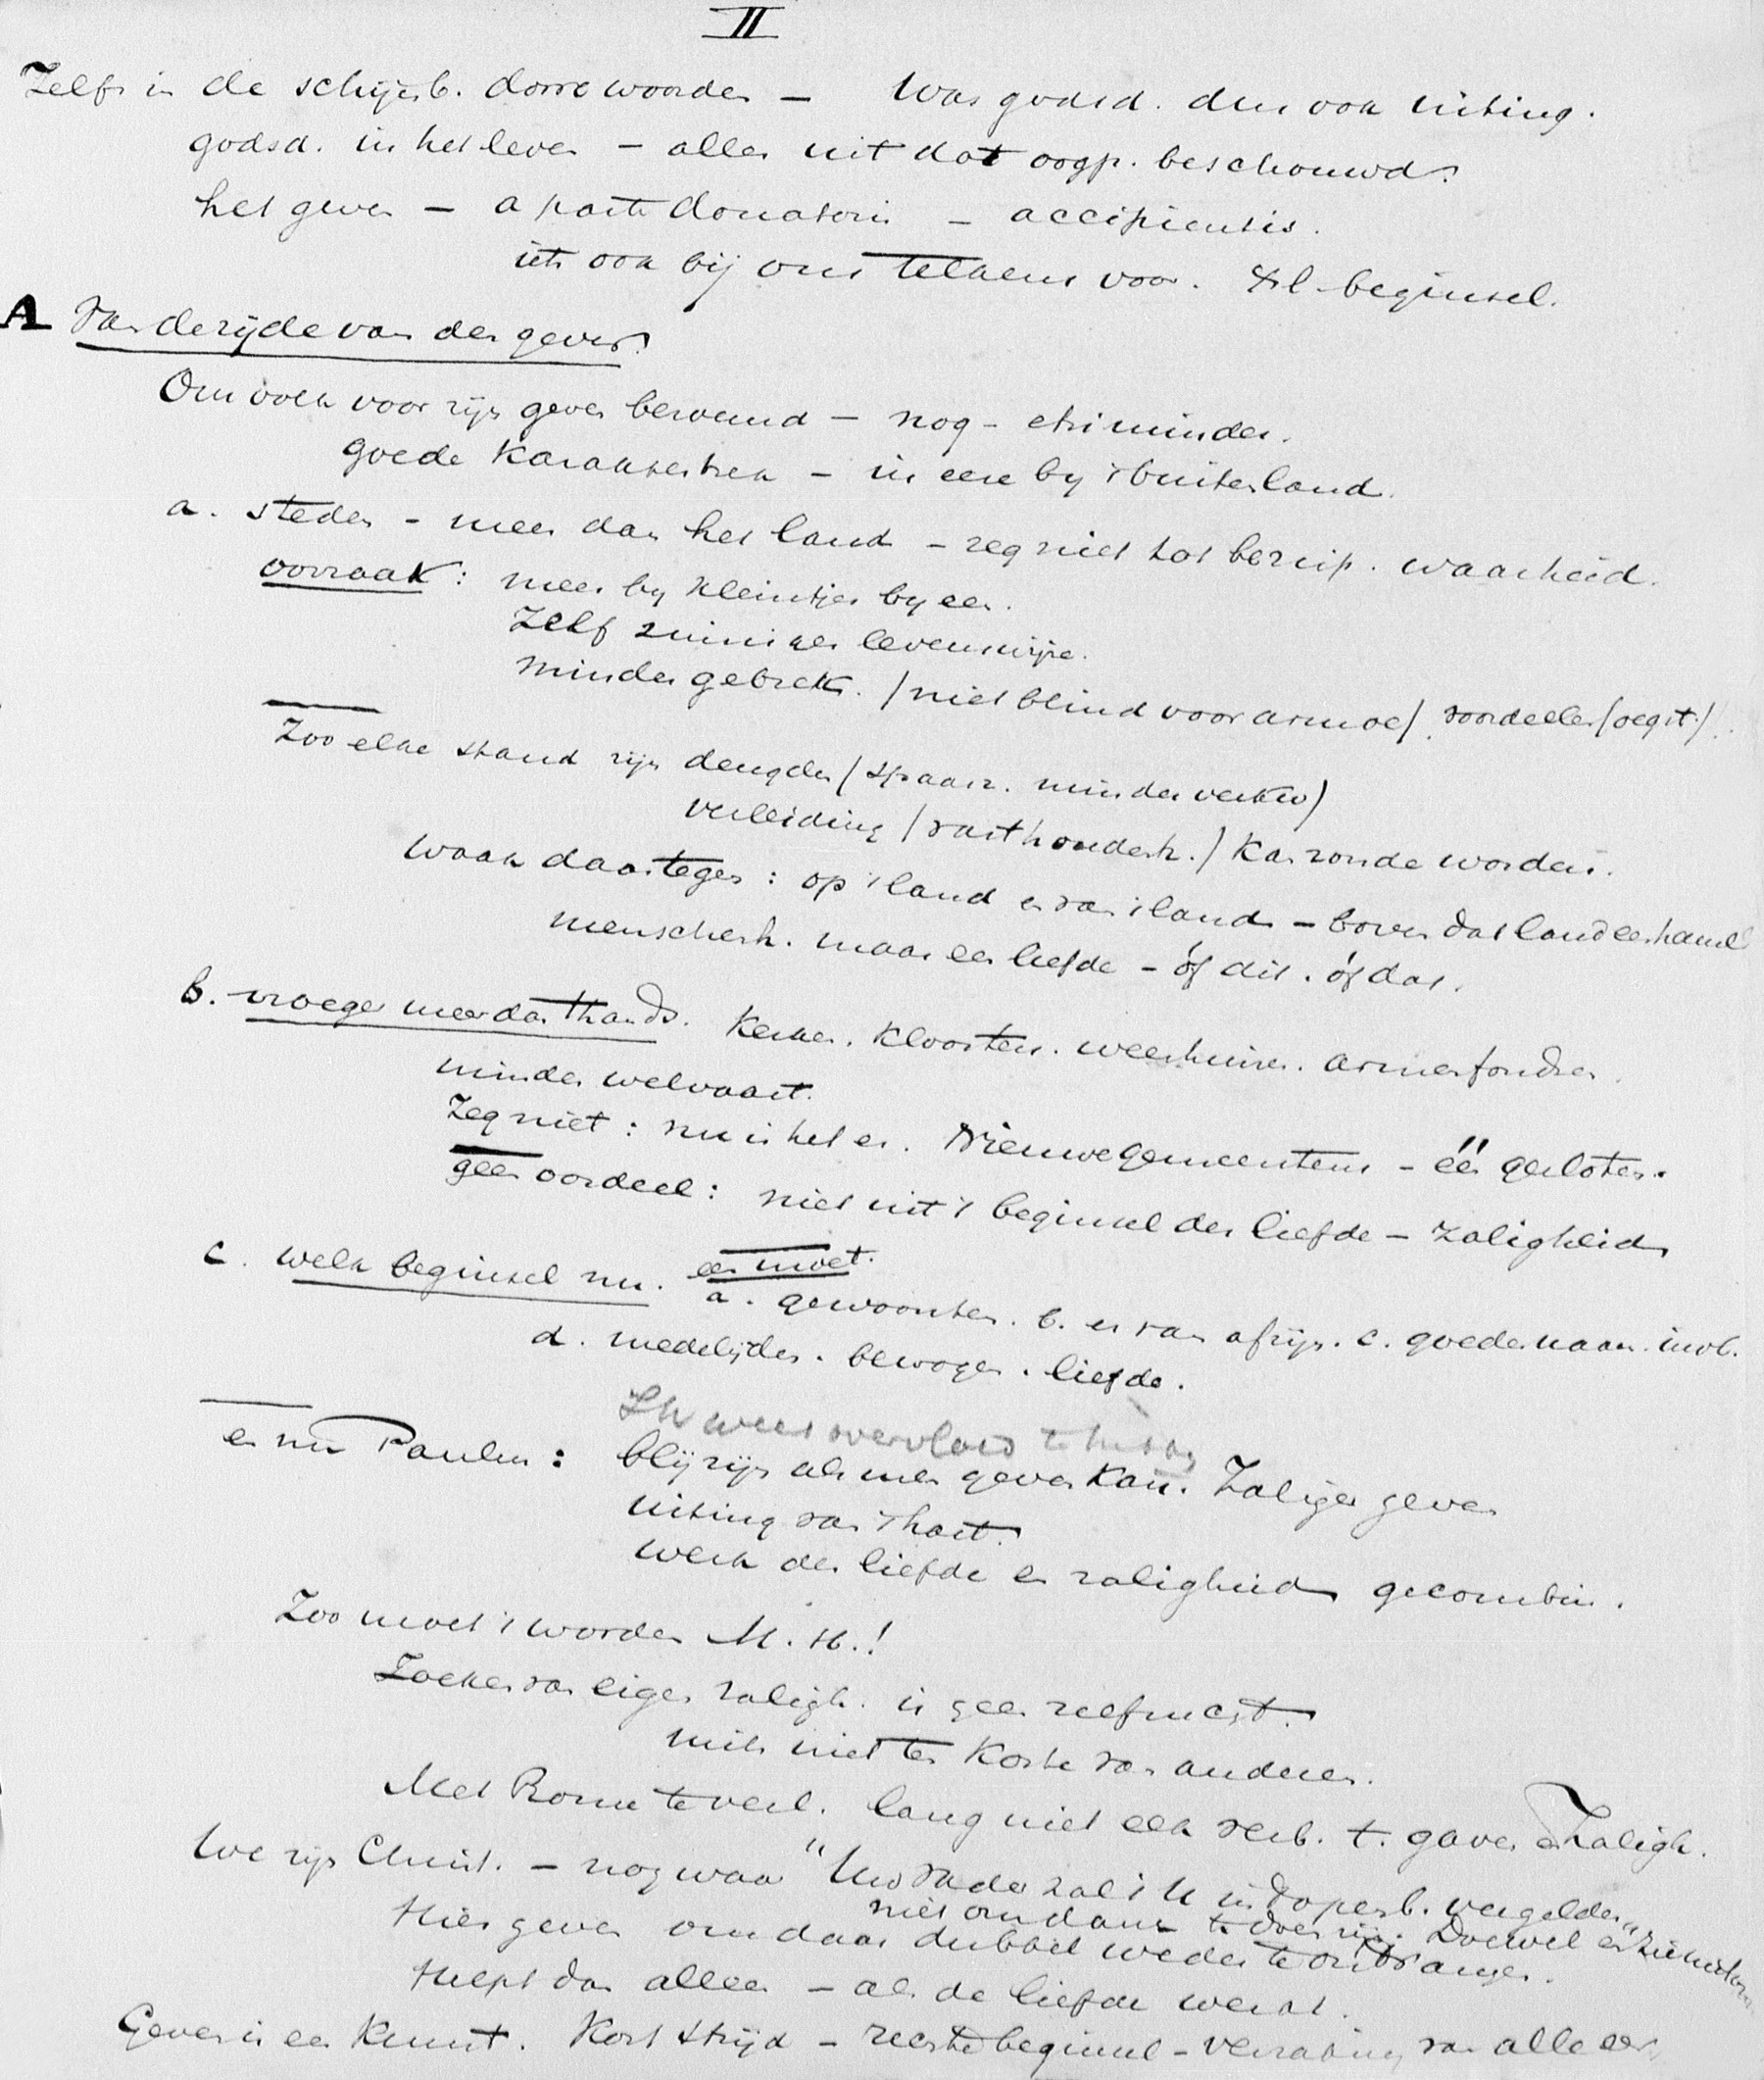 II
Zelfs in de schijnb. dorre woorden — Was godsd. dus ook uiting.
godsd. in het leven — alles uit dat oogp. beschouwd.
het geven — a parte donatoris — accipientis.
iets ook bij ons telkens voor. beginsel.
A Van de zijde van den gever.
Ons volk voor zijn geven beroemd — nog — iets minder.
goede karaktertrek — in eere bij 't buitenland.
a. steden - meer dan het land — zeg niet tot berisp. waarheid.
oorzaak: meer bij kleintjes bijeen.
Zelf zuiniger levenswijze.
minder gebrek. /niet blind voor armoe/ voordeelen
Zoo elke stand zijn deugden /spaarz. minder verkw/
verleiding /vasthoudendh./ kan zonde worden.
Waak daartegen: op 't land en van 't land — boven dat land een hemel
menschenh. maar een liefde — óf dit. óf dat.
b. vroeger meer dan thands. Kerken. Kloosters. weeshuizen. armenfondsen.
minder welvaart.
Zeg niet: nu is het er. Nieuwe gemeenten — één gesloten.
geen oordeel: niet uit 't beginsel der liefde — zaligheid
c. welk beginsel nu. een moet.
a. gewoonten. b. er van afzijn. c. goede naam.
d. medelijden. bewogen. liefde.
wees overvloed
en nu Paulus: blij zijn als men geven kan. Zaliger geven
uiting van 't hart.
werk der liefde en zaligheid gecombin.
Zoo moet 't worden M. H.!
Zoeken van eigen zaligh. is geen zelfzucht.
mits niet ten koste van anderen.
Met Rome te verl. lang niet elk verb. t. gaven en zaligh.
We zijn Christ. — nog waar "Uw Vader zal 't U in 't openb. vergelden"
niet om dank te doen zijn. Doewel en zie niet om
Hier geven om daar dubbel weder te ontvangen.
Helpt dan allen — als de liefde werkt.
Geven is een kunst. Kost strijd — beginsel — verzaking van alle eer